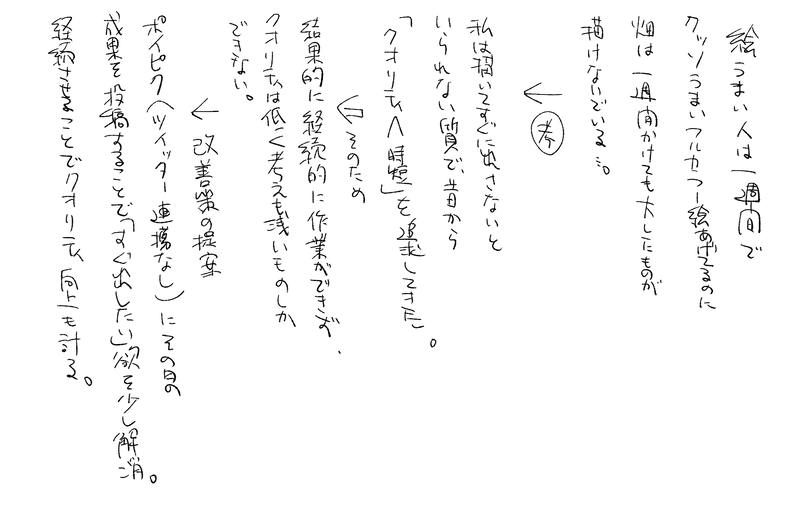 絵うまい人は一週間で
クッソうまいフルカラー絵あげてるのに
畑は一週間かけても大したものが
描けないでいる…。
←
考
私は描いてすぐに出さないと
いられない質で、昔から
「クオリティ＜時短」を追求してきた。
⇐そのため
結果的に継続的に作業ができず、
クオリティは低く考えも浅いものしか
できない。
← 改善策の提案
ポイピク(ツイッター連携なし)にその日の
成果を投稿することで「すぐ出したい」欲を少し解消。
継続させることでクオリティ向上も計る。